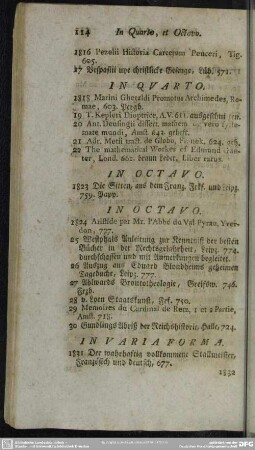 114 In Quarto, et Octavo.
1816 Pezelii Historia Carcerum Peuceri, Tig.
605.
17 Vespasii nye christlicke Gesänge. Lüb. 571.
IN QVARTO.
1818 Marini Ghetaldi Promotus Archimedes, Ro-
mae, 603. Pergb.
19 I. Kepleri Dioptrice, A.V. 611. ausgeschnitten.
20 Ant. Deusingii dissert. mathem. de vero systemate
mundi, Amst. 642. geheft.
21 Adr. Metii tract. de Globo, Franek, 624. geh.
22 The mathematical Workes of Edmund Gun-
ter, Lond. 662. braun Leder, Liber rarus.
IN OCTAVO.
1823 Die Sitten, aus dem Franz. Frkf. und Leipz.
759. Papp.
IN OCTAVO.
1824 Aristide par Mr. l'Abbé du Val Pyrau, Yver-
don, 777.
25 Westphals Anleitung zur Kenntniß der besten
Bücher in der Rechtsgelehrheit, Leipz. 774.
durchschossen und mit Anmerkungen begleitet.
26 Auszug aus Eduard Blondheims geheimen
Tagebuche, Leipz. 777.
27 Ahlwards Brontotheologie, Greifsw. 746.
Frzb.
28 v. Loen Staatskunst, Frf. 740.
29 Memoires du Cardinal de Retz, 1 et 2 Partie,
Amst. 718.
30 Gundlings Abriß der Reichshistorie, Halle, 724.
IN VARIA FORMA.
1831 Der wahrhaftig vollkommene Stallmeister,
Französisch und deutsch, 677.
1832